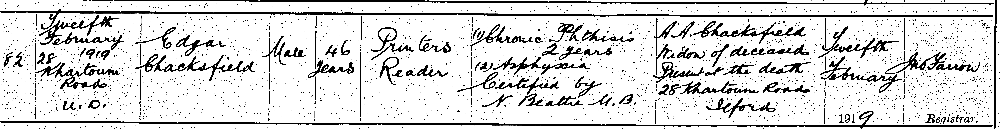 82
Twelfth
February
1919
28
Khartoum
Road
U.D.
Edgar
Chacksfield
Male
46
years
Printers
Reader
(1) Chronic Phthisis
2 years
(2) Asphyxia
Certified by
N. Beattie M.B.
A. A. Chacksfield
Widow of deceased
Present at the death
28 Khartoum Road
Ilford
Twelfth
February
1919
Jno Farrow
Registrar.